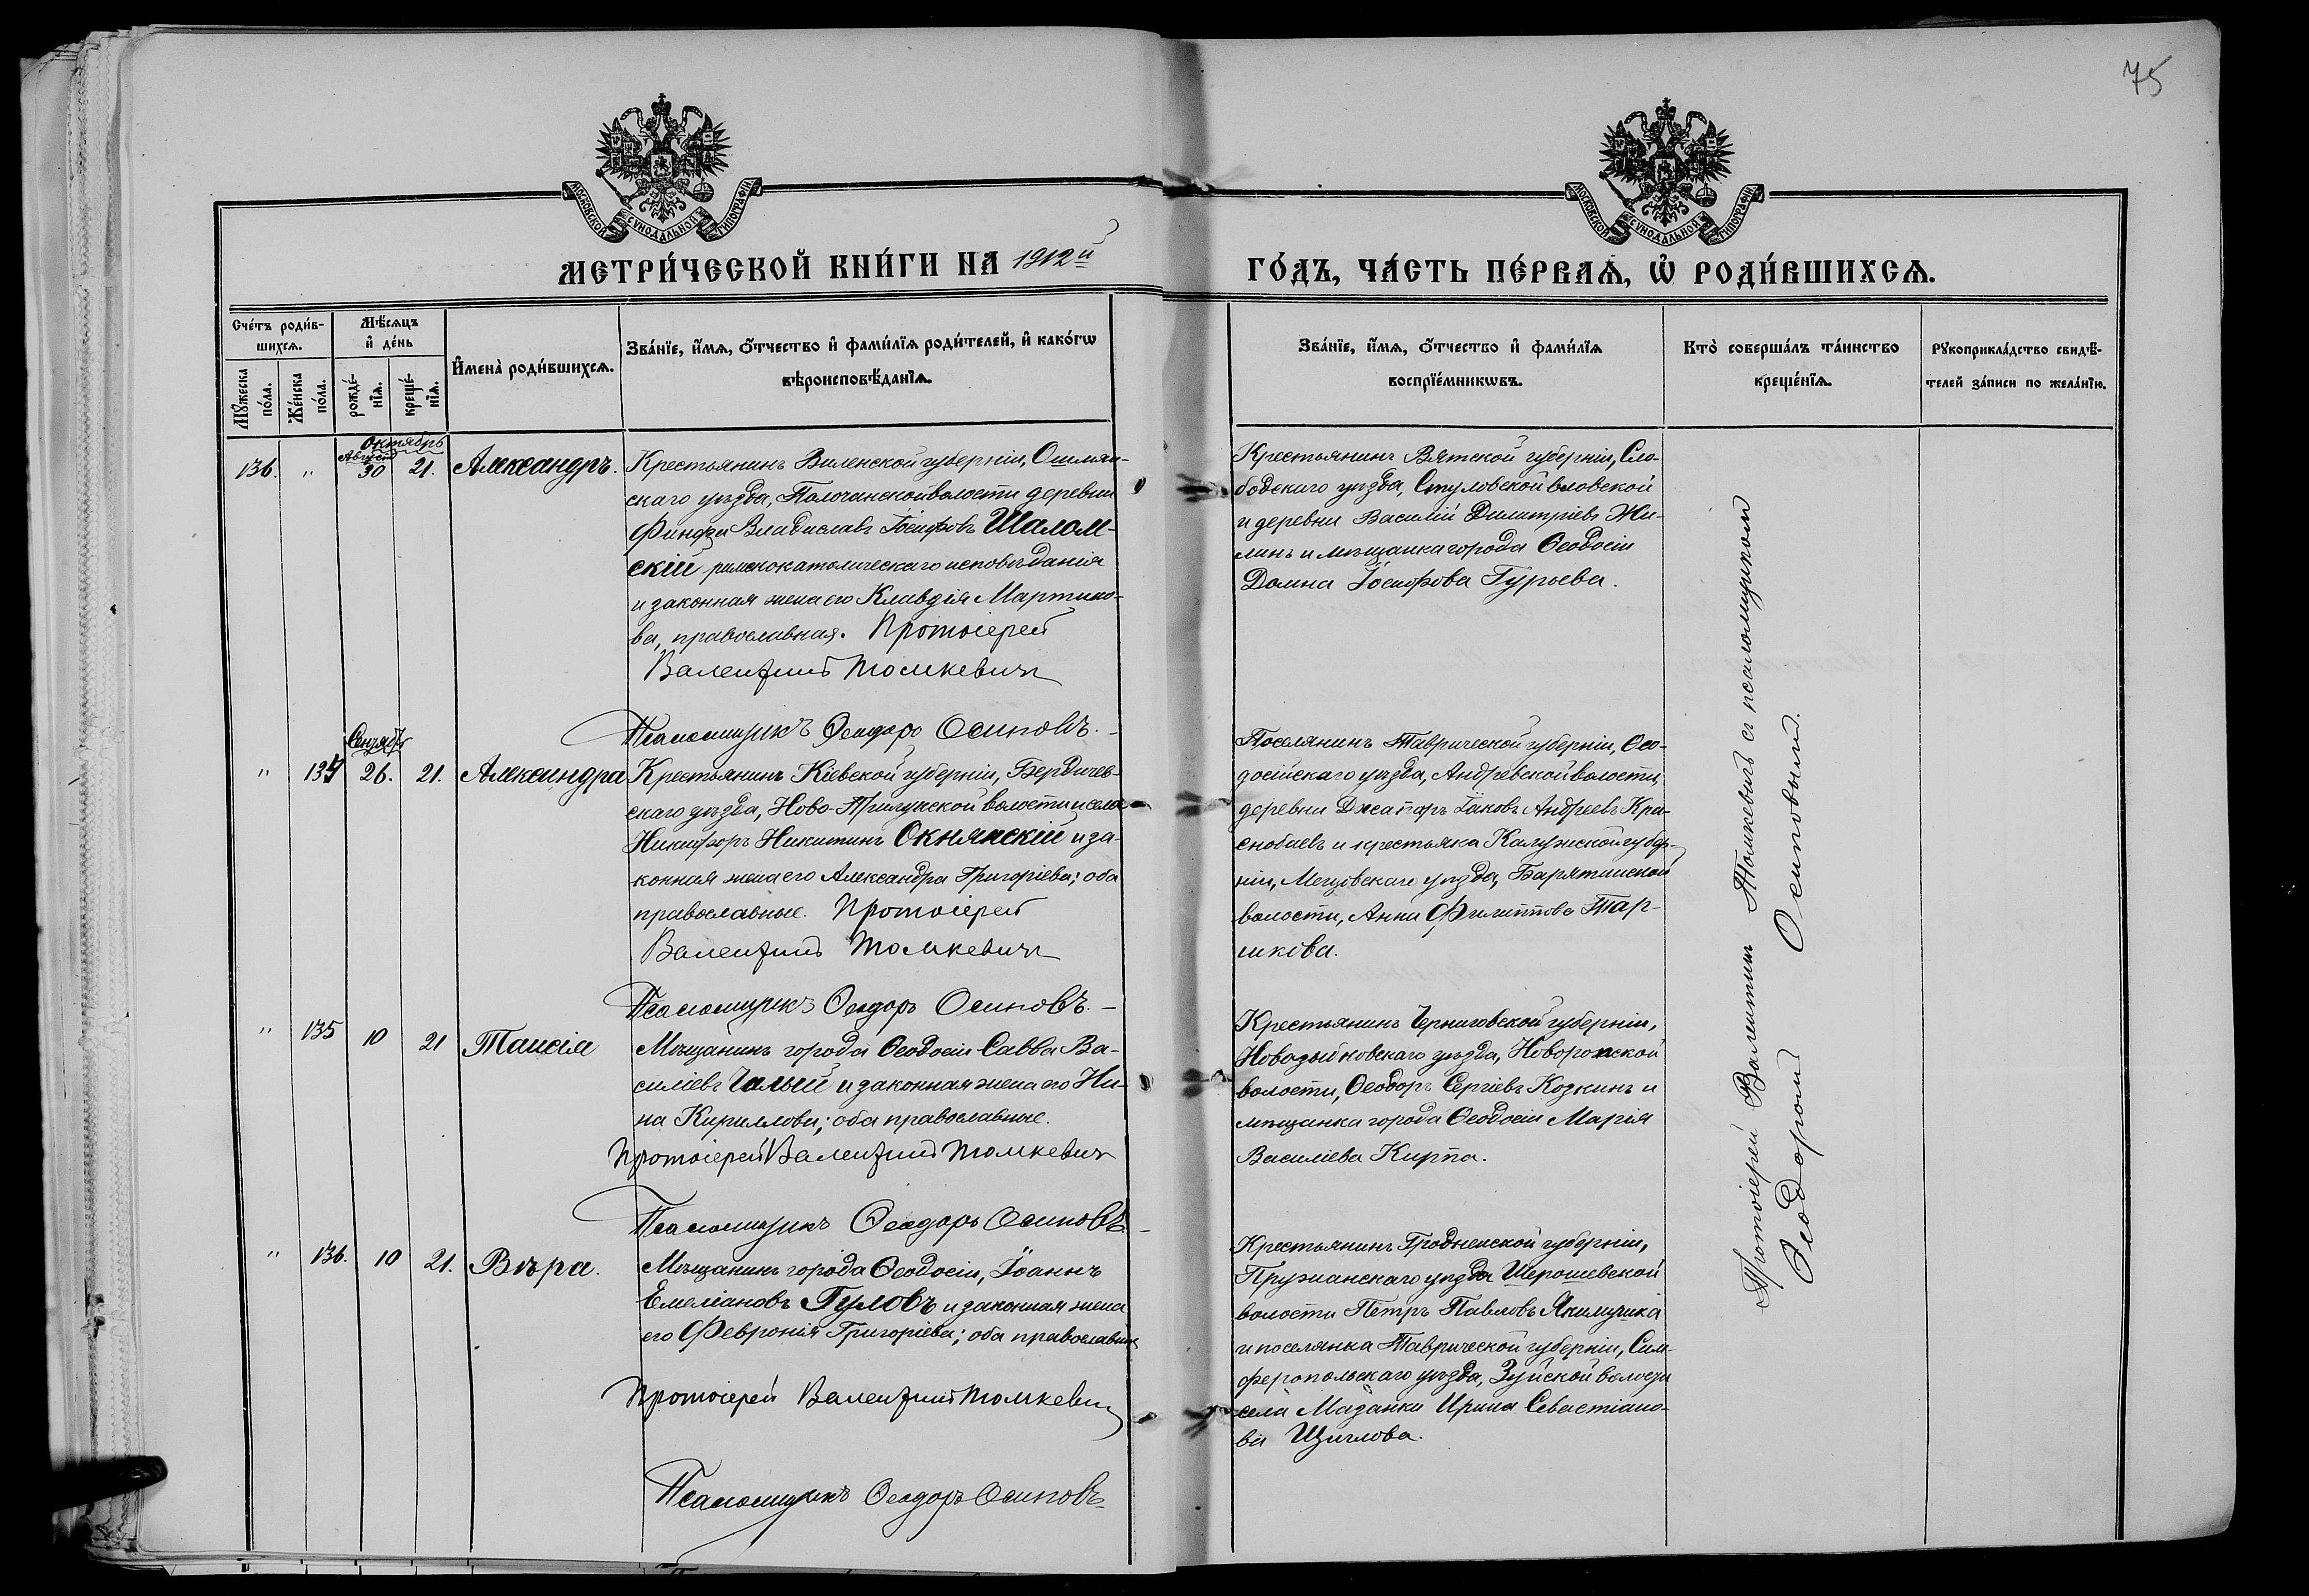 75
МОСКОВСКОЙ СѴНОДАЛЬНОЙ ТИПОГРАФІИ
МОСКОВСКОЙ СѴНОДАЛЬНОЙ ТИПОГРАФІИ
МЕТРИ́ЧЕСКОЙ КНИ́ГИ НА 1912й
ГО́ДЪ, ЧА́СТЬ ПЕ́РВАѦ, Ѡ҆ РОДИ́ВШИХСѦ.
Сче́тъ роди́в-
шихсѧ.
Мꙋ́жеска по́ла.
Же́нска по́ла.
Мѣ́сѧцъ
и҆ де́нь
рожде́-
нїѧ.
креще́-
нїѧ.
И҆мена̀ роди́вшихсѧ.
Зва́нїе, и҆́мѧ, ѻ҆́тчество и҆ фами́лїѧ роди́телей, и҆ како́гѡ
вѣроисповѣ́данїѧ.
Зва́нїе, и҆́мѧ, ѻ҆́тчество и҆ фами́лїѧ
воспрїе́мникѡвъ.
Кто̀ соверша́лъ та́инство
креще́нїѧ.
Рꙋкоприкла́дство свидѣ́-
телей за́писи по жела́нїю.
Октябрь
136. " Август 30 21. Александръ.
Крестьянинъ Виленской губерніи, Ошмян-
скаго уѣзда, Полочанской волости деревни
Владиславъ Іосифовъ Шалом-
скій римскокатолическаго исповѣданія
и законная жена его Клавдія Мартино-
ва, православная. Протоіерей
Валентинъ Томкевичъ
Псаломщикъ Ѳеодоръ Осиповъ.
Крестьянинъ Вятской губерніи, Сло-
бодскаго уѣзда, Стуловской
и деревни Василій Димитріевъ Жи-
линъ и мѣщанка города Ѳеодосіи
Домна Іосифова Гурьева.
Сентябрь
" 134 26. 21. Александра
Крестьянинъ Кіевской губерніи, Бердичев-
скаго уѣзда, Ново-Прилукской волости и села
Никифоръ Никитинъ Окнянскій и за-
конная жена его Александра Григоріева; оба
православные. Протоіерей
Валентинъ Томкевичъ
Псаломщикъ Ѳеодоръ Осиповъ.
Поселянинъ Таврической губерніи, Ѳео-
досійскаго уѣзда, Андреевской волости,
деревни Іаковъ Андреевъ Кра-
снобаевъ и крестьянка Калужской губер-
ніи, Мещовскаго уѣзда, Барятинской
волости, Анна Филиппова Тар-
шкова.
" 135 10 21 Таисія
Мѣщанинъ города Ѳеодосіи Савва Ва-
силіевъ Чалый и законная жена его Ни-
на Кириллова; оба православные.
Протоіерей Валентинъ Томкевичъ
Псаломщикъ Ѳеодоръ Осиповъ
Крестьянинъ Черниговской губерніи,
Новозыбковскаго уѣзда, Новоропской
волости, Ѳеодоръ Сергіевъ Козкинъ и
мѣщанка города Ѳеодосіи Марія
Василіева Кирпа.
" 136. 10 21. Вѣра.
Мѣщанинъ города Ѳеодосіи, Іоаннъ
Емеліановъ Гуловъ и законная жена
его Февронія Григоріева; оба православные
Протоіерей Валентинъ Томкевичъ
Псаломщикъ Ѳеодоръ Осиповъ
Крестьянинъ Гродненской губерніи,
Пружанскаго уѣзда Шерешевской
волости Петръ Павловъ
и поселянка Таврической губерніи, Сим-
феропольскаго уѣзда, Зуйской волости
села Мазанки Ирина Севастіано-
ва Щиглова.
Протоіерей Валентинъ Томкевичъ съ псаломщикомъ
Ѳеодоромъ Осиповымъ.